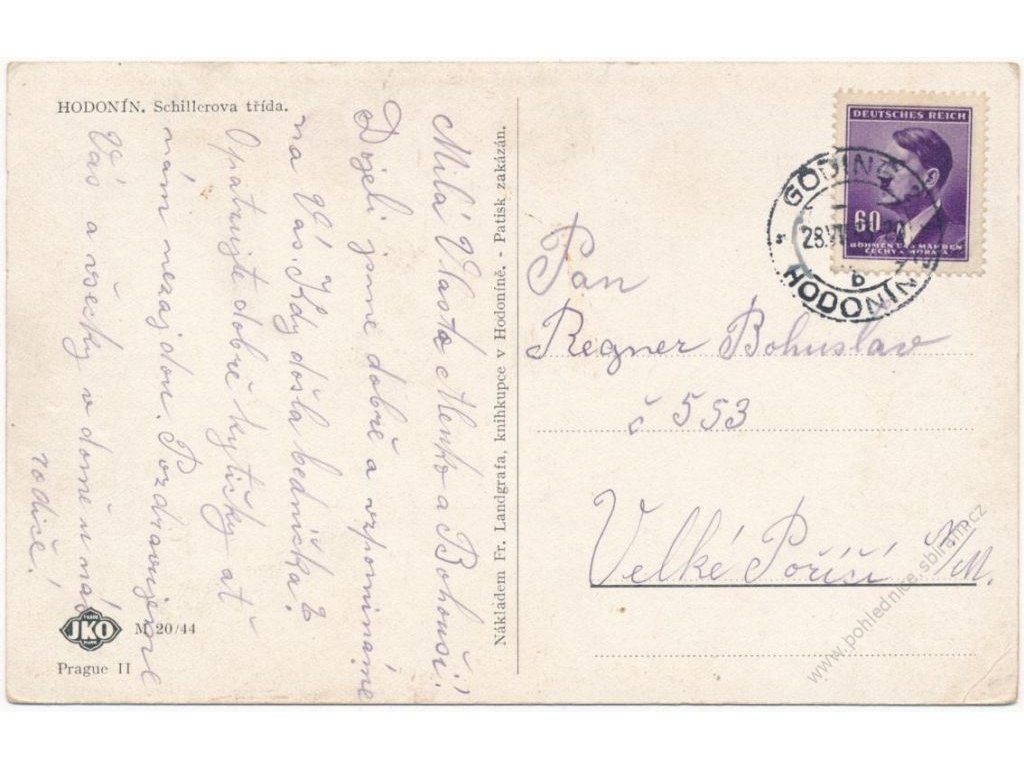 HODONÍN. Schillerova třída.
Milá Vlasto a Bohouši!
Dojeli jsme dobře a vzpomínáme
na Vás. Kdy došla bednička?
Opatrujte dobře kytičky ať
nám nezajdou. Pozdravujeme
Vás a všecky v domě u nás
rodiče!
JKO
M 20/44
Prague II
Nákladem Fr. Landgrafa, knihkupce v Hodoníně. - Patisk zakázán.
DEUTSCHES REICH
60
BÖHMEN UND MÄHREN
ČECHY A MORAVA
GÖDING
28.VI
b
HODONÍN
Pan
Regner Bohuslav
č 553
Velké Poříčí
www.pohlednice.sbiram.cz